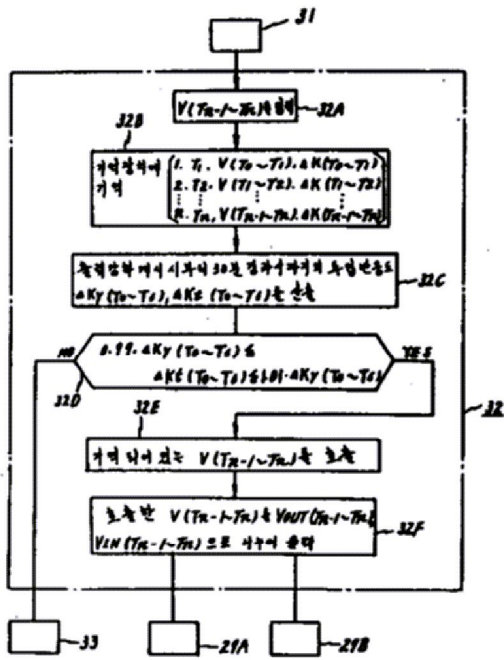 31
V(Tn-1~Tn)를 입력
32A
32B
기억장치에
기억
1. T1. V(T0~T1). ΔK(T0~T1)
2. T2. V(T1~T2). ΔK(T1~T2)
n. Tn. V(Tn-1~Tn). ΔK(Tn-1~Tn)
30분
ΔKy(T0~Ts), ΔKt(T0~Ts)를 산출
32C
NO
0.99·ΔKy(T0~Ts)≤
ΔKt(T0~Ts)≤1.01·ΔKy(T0~Ts)
YES
32D
32
32E
기억되어 있는 V(Tn-1~Tn)를 호출
호출한 V(Tn-1~Tn)를 VOUT(Tn-1~Tn)
VIN(Tn-1~Tn)으로 나누어 출력
32F
33
29A
29B